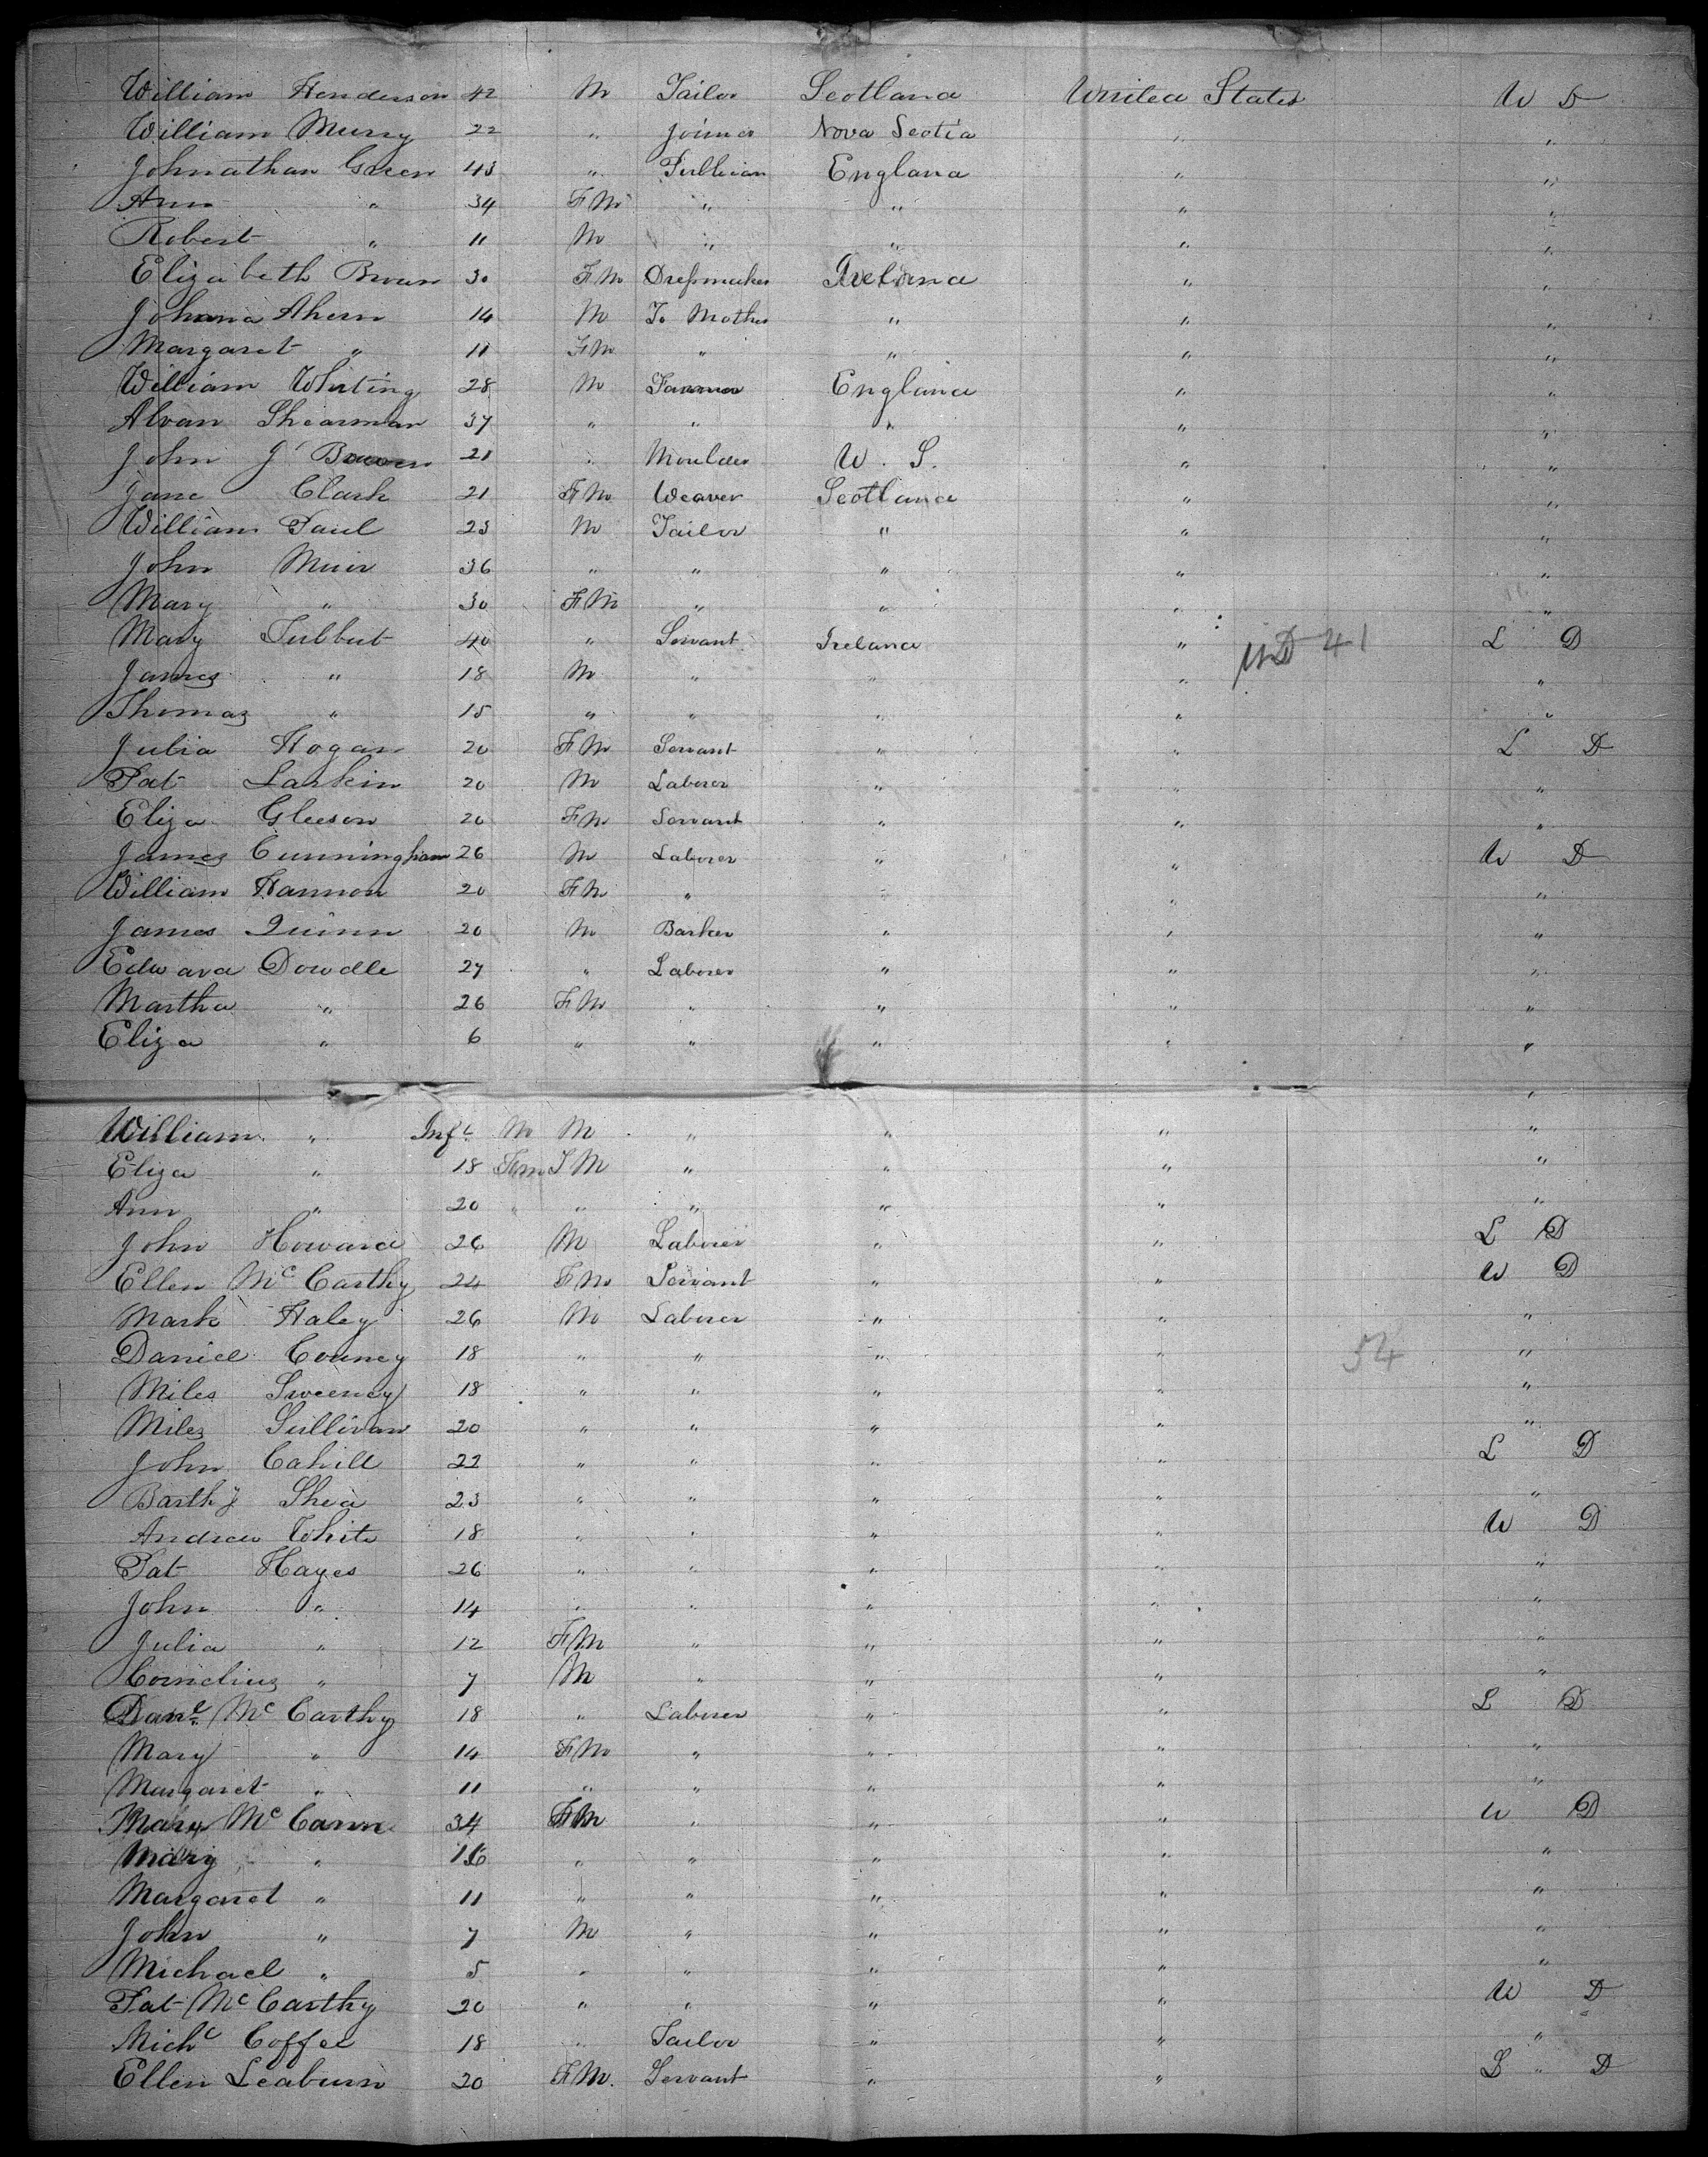 William Henderson 42 M Tailor Scotland United States U D
William Murry 22 " " Joiner Nova Scotia " "
Johnathan Green 43 " Publican England " "
Ann " 34 F M " " " "
Robert " 11 M " " " "
Elizabeth Brown 30 F M Dressmaker Ireland " "
Johana Ahern 14 M To Mother " " "
Margaret " 11 F M " " " "
William Whiting 28 M Farmer England " "
Alvan Shearman 37 " " " " "
John J Bowen 21 " Moulder U. S. " "
Jane Clark 21 F M Weaver Scotland " "
William Paul 23 M Tailor " " "
John Muir 36 " " " " "
Mary " 30 F M " " " "
Mary Tubbut 40 " Servant Ireland " 41 L D
James " 18 M " " " "
Thomas " 15 " " " " "
Julia Hogan 20 F M Servant " " L D
Pat Larkin 20 M Laborer " " "
Eliza Gleeson 20 F M Servant " " "
James Cunningham 26 M Laborer " " U D
William Hannon 20 F M " " " "
James Quinn 20 M Barker " " "
Edward Dowdle 27 " Laborer " " "
Martha " 26 F M " " " "
Eliza " 6 " " " " "
William " Inft M M " " " "
Eliza " 18 Fem F M " " " "
Ann " 20 " " " " " "
John Howard 26 M Laborer " " L D
Ellen Mc Carthy 24 F M Servant " " U D
Mark Haley 26 M Laborer " " "
Daniel Couney 18 " " " " 54 "
Miles Sweeney 18 " " " " "
Miles Sullivan 20 " " " " "
John Cahill 22 " " " " L D
Barthy Shea 23 " " " " "
Andrew White 18 " " " " U D
Pat Hayes 26 " " " " "
John " 14 " " " " "
Julia " 12 F M " " " "
Cornelius " 7 M " " " "
Danl Mc Carthy 18 " Laborer " " L D
Mary " 14 F M " " " "
Margaret " 11 " " " " "
Mary Mc Cann 34 F M " " " U D
Mary " 16 " " " " "
Margaret " 11 " " " " "
John " 7 M " " " "
Michael " 5 " " " " "
Pat Mc Carthy 20 " " " " U D
Michl Coffee 18 " Tailor " " "
Ellen Leaburn 20 F M. Servant " " L " D